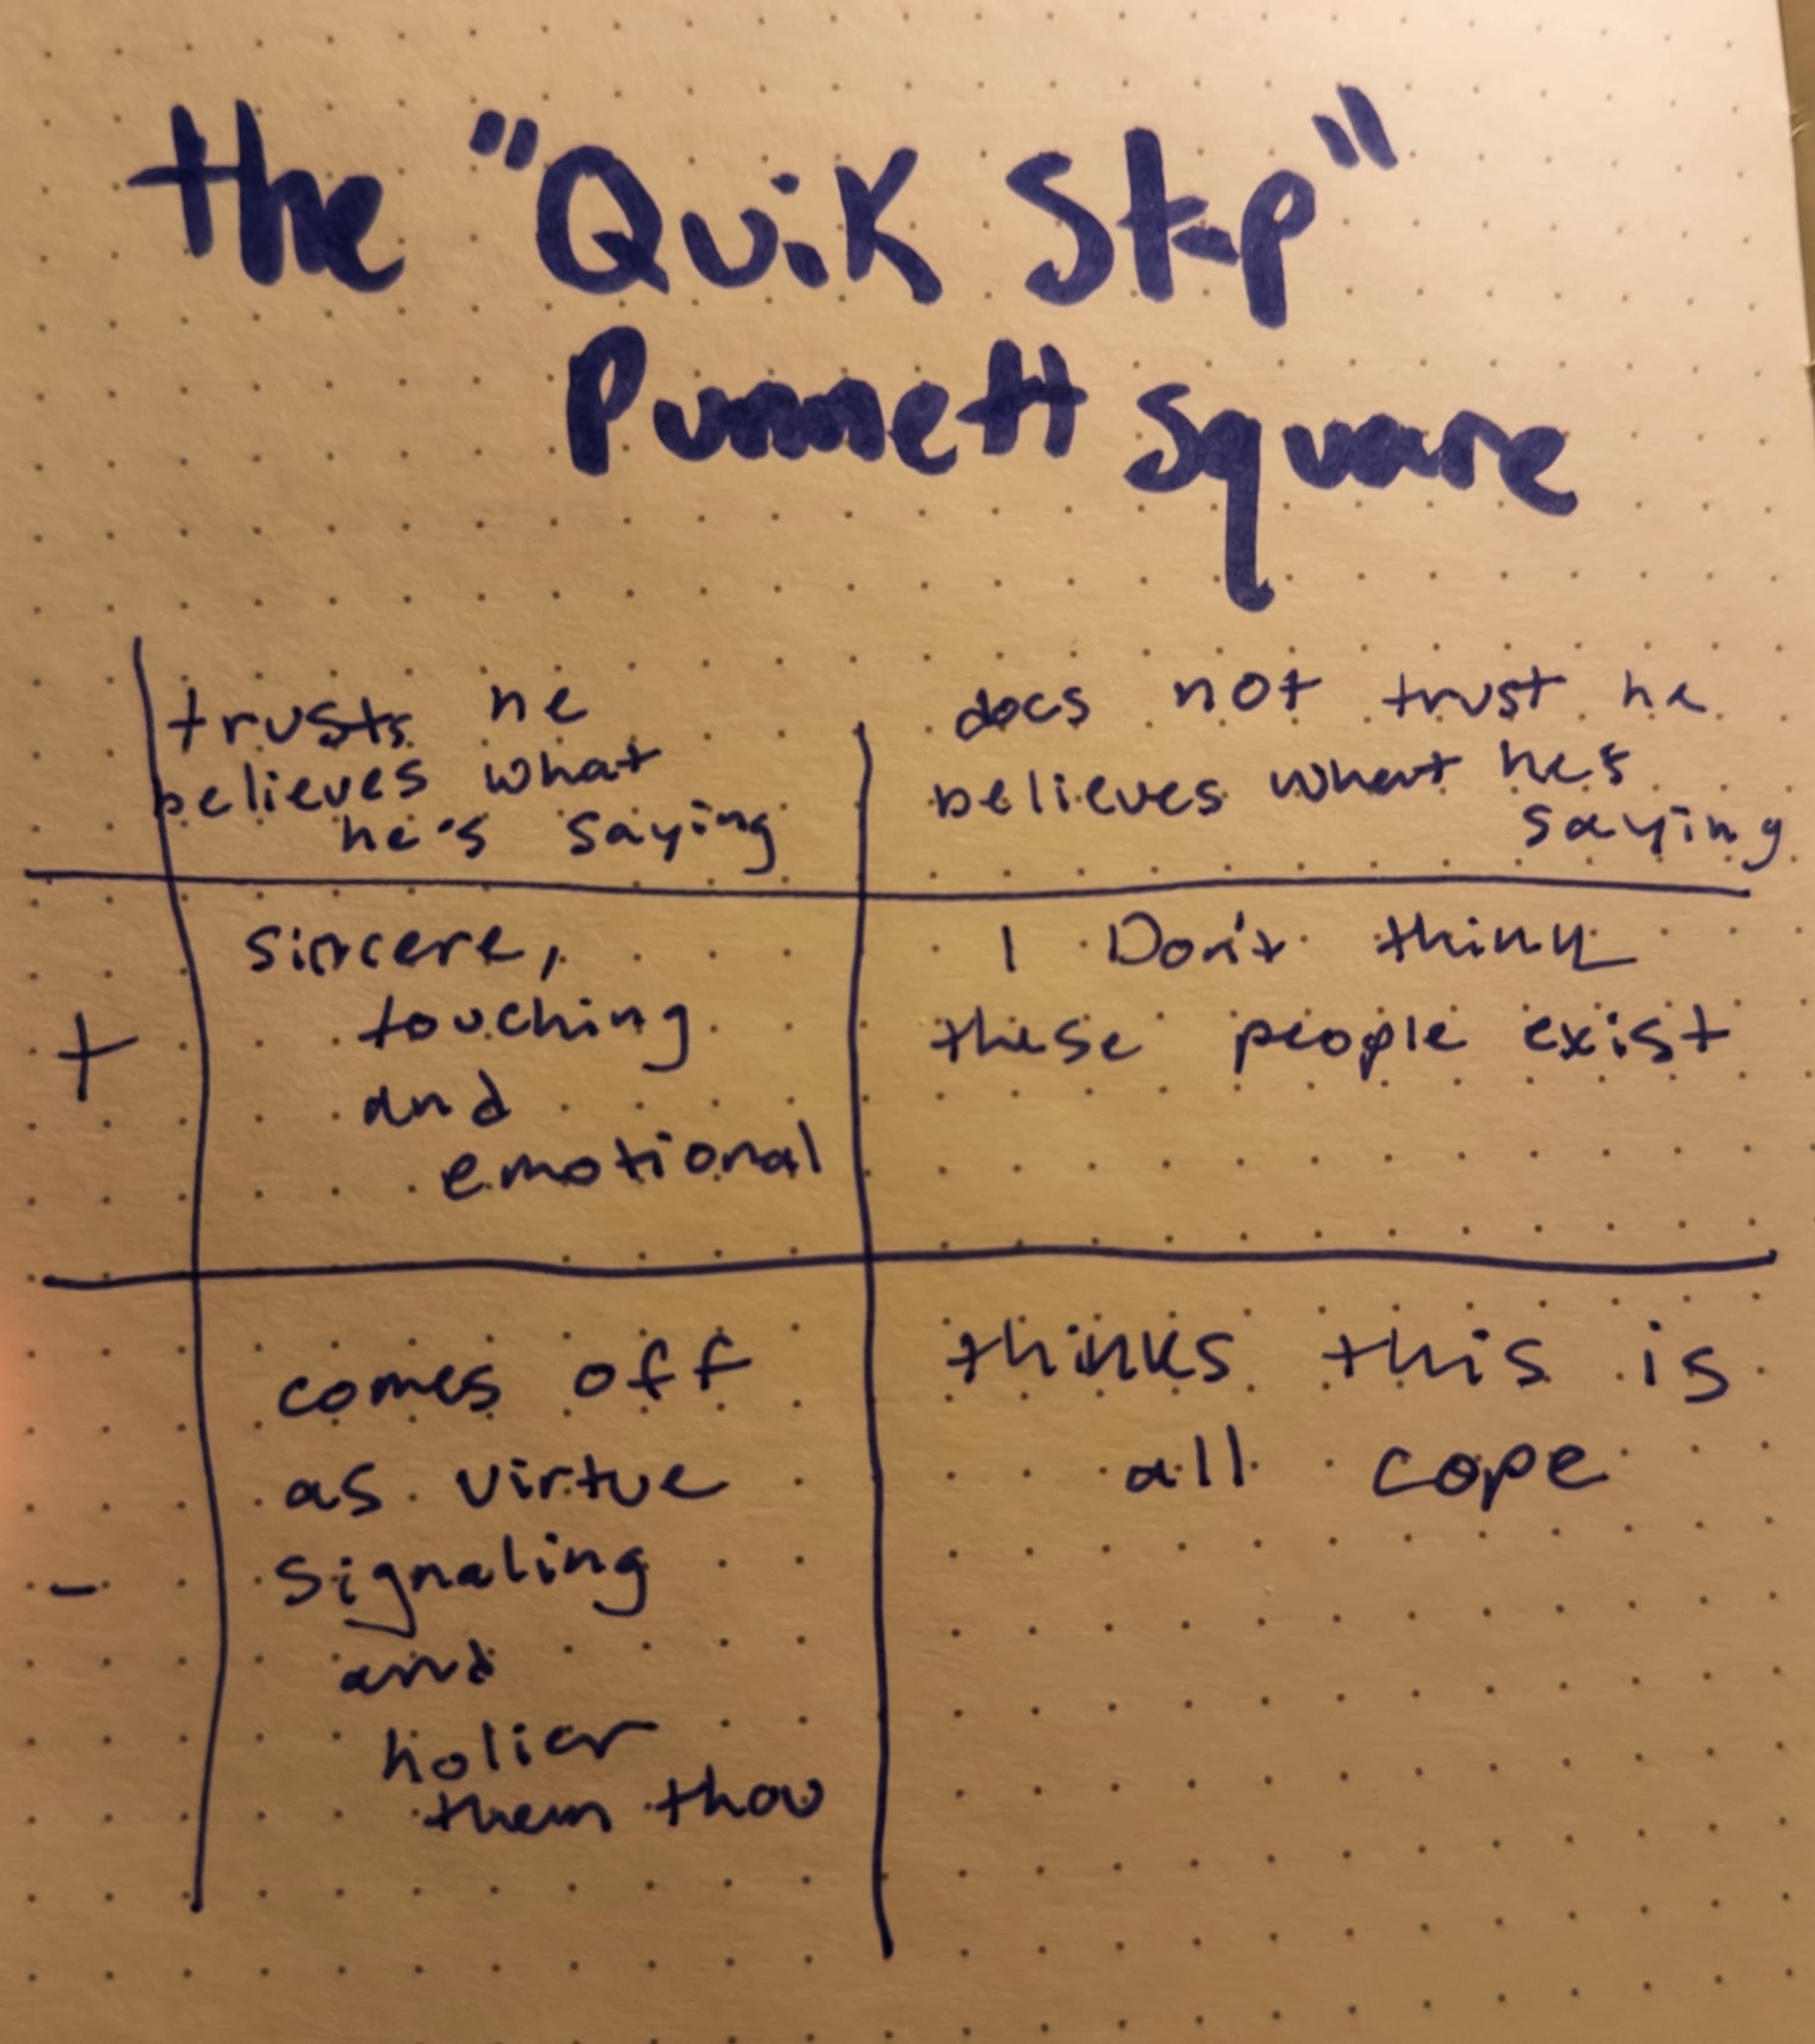 the "Quik Stop"
Punnett square
trusts he
believes what
he's saying
does not trust he
believes what he's
saying
+
sincere,
touching
and
emotional
I Don't think
these people exist
-
comes off
as virtue
signaling
and
holier
then thou
thinks this is
all cope